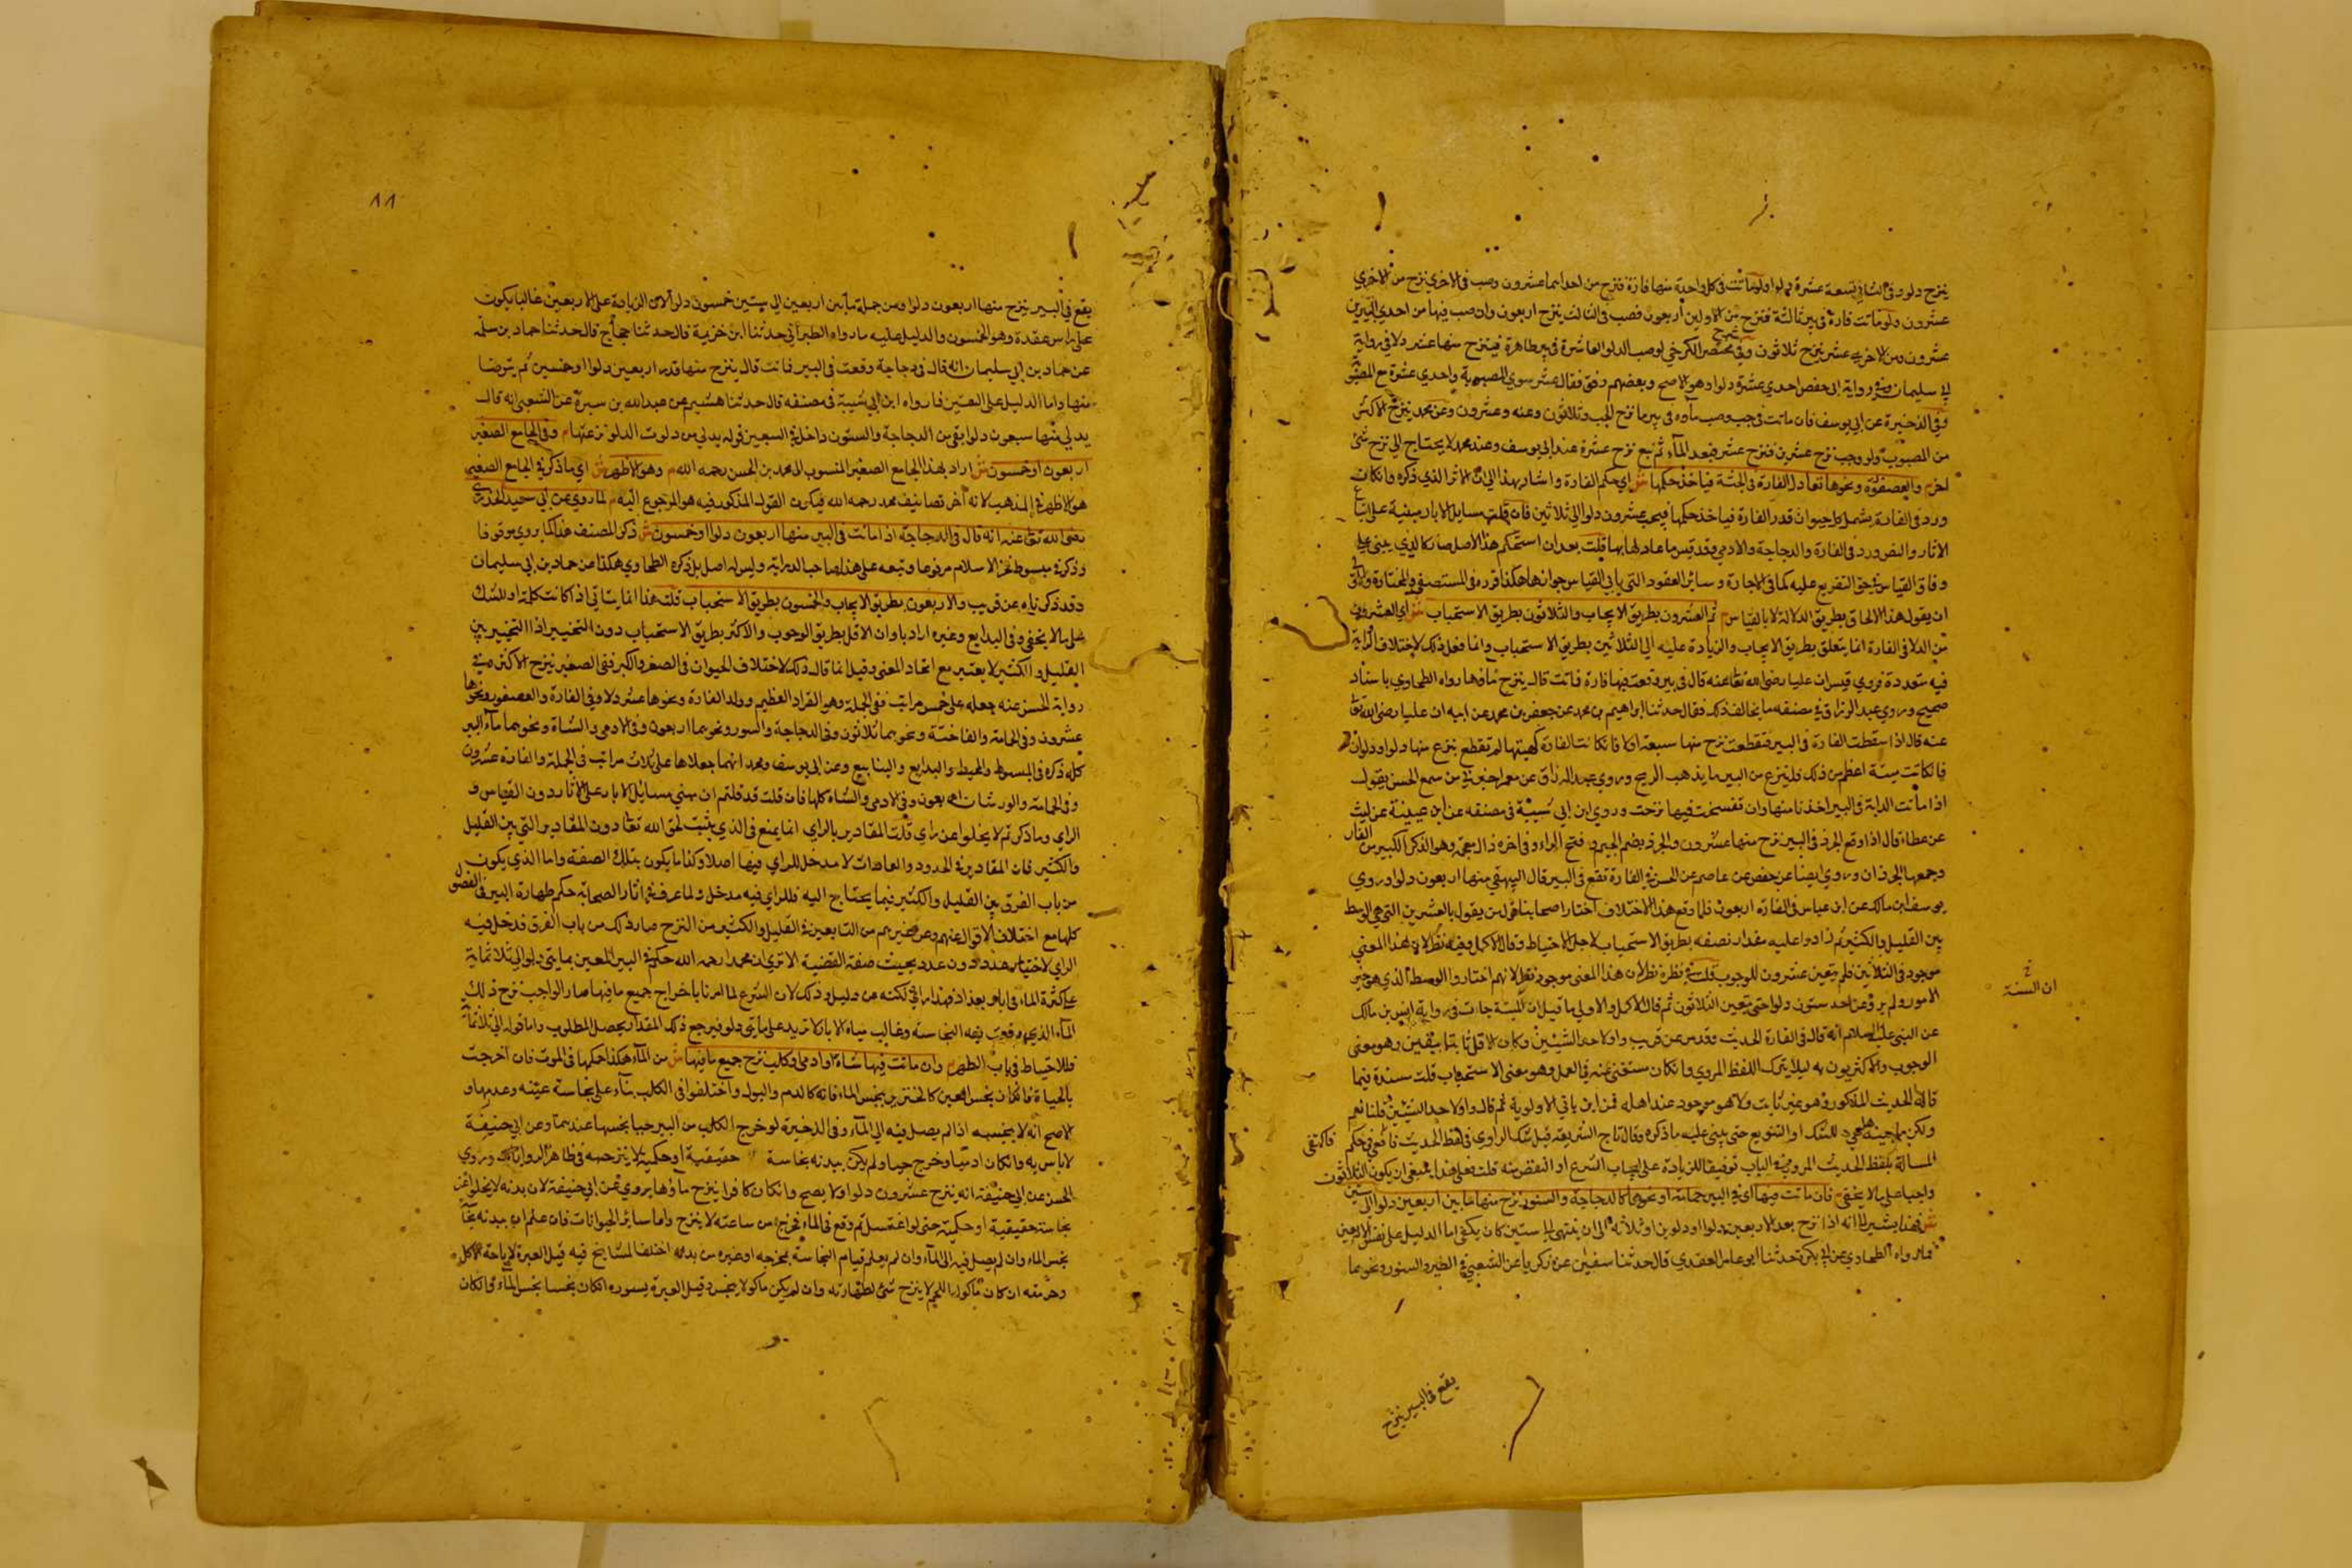 ينزح دلو وفى الثانى تسعة عشرة دلوا ولو ماتت فى كل واحدة منها فارة فنزح من احداهما عشرون وصب فى الاخرى نزح من الاخرى
عشرون ولو ماتت فارة فى بير ثالثة فنزح من الاولين اربعون فصب فى الثالث ينزح اربعون وان صب فيها من احدى البيرين
عشرون ومن الاخرى عشر ينزح ثلاثون وفى شرح مختصر الكرخى لو صب الدلو العاشرة فى بير طاهرة فينزح منها عشر دلاء فى رواية
ابى سليمان وفى رواية ابى حفص احدى عشرة دلوا وهو الاصح وبعضهم وفق فقال عشر سوى المصبوبة واحدى عشرة مع المصبوبة
وفى الذخيرة عن ابى يوسف فان ماتت فى جب وصب ماوه فى بير ما نزح الجب وثلاثون وعنه وعشرون وعن محمد ينزح الاكثر
من المصبوب ولو وجب نزح عشرين فنزح عشر فبعد الماء ثم نبع نزح عشرة عند ابى يوسف وعند محمد لا يحتاج الى نزح شئ
اخر م والعصفورة ونحوها تعادل الفارة فى الجثة فياخذ حكمها ش اى حكم الفارة واشار بهذا الى ان الاثر الذى ذكره وانكان
ورد فى الفارة يشمل كل حيوان قدر الفارة فياخذ حكمها فيجب عشرون دلوا الى ثلاثين فان قلت مسايل الابار مبنية على اتباع
الاثار والنص ورد فى الفارة والدجاجة والادمى وقد قيس ما عادلها بها قلت بعد ان استحكم هذا الاصل صار كالذى يبنى على
وفاق القياس فى حق التفريع عليه كما فى الاجارة وسائر العقود التى يابى القياس جوازها هكذا قرره فى المستصفى والمختارة والاولى
ان يقول هذا الالحاق بطريق الدلالة لا بالقياس م ثم العشرون بطريق الايجاب والثلاثون بطريق الاستحباب ش اى العشرون
من الدلاء فى الفارة انما يتعلق بطريق الايجاب والزيادة عليه الى الثلاثين بطريق الاستحباب وانما فعل ذلك لاختلاف الرواية
فيه متعددة فروى قيس ان عليا رضى الله تعالى عنه قال فى بير وقعت فيها فارة فماتت قال ينزح ماؤها رواه الطحاوى باسناد
صحيح وروى عبد الرزاق فى مصنفه ما يخالف ذلك فقال حدثنا ابراهيم بن محمد عن جعفر بن محمد عن ابيه ان عليا رضى الله تعالى
عنه قال اذا سقطت الفارة فى البير فتقطعت نزح منها سبعة ادلاء فانكانت الفارة كهيئتها لم تقطع ينزع منها دلوا ودلوان
فانكانت منتنة اعظم من ذلك فلينزع من البير ما يذهب الريح وروى عبد الرزاق عن معمر اخبرنى من سمع الحسن يقول
اذا ماتت الدابة فى البير اخذنا منها وان تفسخت فيها نزحت وروى ابن ابى شيبة فى مصنفه عن ابن عيينة عن ليث
عن عطاء قال اذا وقع الجرذ فى البير نزح منها عشرون والجرذ بضم الجيم وفتح الراء وفى اخره ذال معجمة وهو الذكر الكبير من الفار
وجمعها الجرذان وروى ايضا عن حفص عن عاصم عن الحسن فى الفارة تقع فى البير قال البيهقى منها اربعون دلوا وروى
يوسف ابن مالك عن ابن عباس فى الفارة اربعون فلما وقع هذا الاختلاف اختار اصحابنا قول من يقول بالعشرين التى هى الوسط
بين القليل والكثير ثم زادوا عليه مقدار نصفه بطريق الاستحباب لاجل الاحتياط وقال الاكمل وفيه نظر لان هذا المعنى
موجود فى الثلاثين فلم يتعين عشرون للوجوب قلت فى نظره نظر لان هذا المعنى موجود نظرا لانهم اختاروا الوسط الذى هو خير
الامور ولم يرو عن احد ستون دلوا حتى يتعين الثلاثون ثم قال الاكمل والاولى ما قيل ان السنة جاءت فى رواية انس بن مالك
عن النبى عليه السلام انه قال فى الفارة الحديث وقد مر عن قريب واولاحد الشيئين وكان الاقل ثابتا بيقين وهو معنى
الوجوب والاكثر يؤتى به ليلا يترك اللفظ المروى وانكان مستغنى عنه فى العمل وهو معنى الاستحباب قلت سنده فيما
قاله الحديث المذكور وهو غير ثابت ولا هو موجود عند اهله فمن اين ياتى الاولوية ثم قال واولاحد الشيئين قلنا نعم
ولكن ما جيئه للشك او التنويع حتى يبنى عليه ما ذكره وقال تاج الشريعة قيل شك الراوى فى لفظ الحديث فاقعى حكم فاكتفى
المسالة بلفظ الحديث المروى فى الباب توفيقا للزيادة على ايجاب الشرع او النقص منه قلت فعلى هذا ينبغى ان يكون الثلاثون
واجبا على ما لا يخفى م فان ماتت فيها اى فى البير حمامة او نحوها كالدجاجة والسنور نزح منها ما بين اربعين دلوا الى ستين
ش فهذا يشير الى انه اذا نزح بعد الاربعين دلوا او دلوين او ثلاثة الى ان ينتهى الى ستين كان يكفى اما الدليل على نفس الاربعين
فما رواه الطحاوى عن ابى بكرة حدثنا ابو عامر العقدى قال حدثنا سفين عن زكريا عن الشعبى فى الطير والسنور ونحوهما
ان السنة
يقع فى البير ينزح
٨٨
يقع فى البير ينزح منها اربعون دلوا ومن جملة ما بين اربعين الى ستين خمسون دلوا لان الزيادة على الاربعين غالبا يكون
على راس عقدة وهو الخمسون والدليل عليه ما رواه الطبرانى حدثنا ابن خزيمة قال حدثنا حجاج قال حدثنا حماد بن سلمة
عن حماد بن ابى سليمان انه قال فى دجاجة وقعت فى البير فماتت قال ينزح منها قدر اربعين دلوا او خمسين ثم يتوضا
منها واما الدليل على الستين فما رواه ابن ابى شيبة فى مصنفه قال حدثنا هشيم عن عبد الله بن سبرة عن الشعبى انه قال
يدلى منها سبعون دلوا يعنى من الدجاجة والستون داخل فى السبعين قوله يدلى من دلوت الدلو نزعتها م وفى الجامع الصغير
اربعون او خمسون ش اراد بهذا الجامع الصغير المنسوب الى محمد بن الحسن رحمه الله م وهو الاظهر ش اى ما ذكر فى الجامع الصغير
هو الاظهر فى المذهب لانه آخر تصانيف محمد رحمه الله فيكون القول المذكور فيه هو المرجوع اليه م لما روى عن ابى سعيد الخدرى
رضى الله تعالى عنه انه قال فى الدجاجة اذا ماتت فى البير منها اربعون دلوا او خمسون ش ذكر المصنف هذا كما روى موقوفا
وذكر فى مبسوط فخر الاسلام مرفوعا وتبعه على هذا صاحب الدراية وليس له اصل بل ذكره الطحاوى هكذا عن حماد بن ابى سليمان
وقد ذكرناه عن قريب والاربعون بطريق الايجاب والخمسون بطريق الاستحباب قلت هذا انما يتاتى اذا كانت كلمة او للشك
على ما لا يخفى وفى البدايع وغيره اراد باو ان الاقل بطريق الوجوب والاكثر بطريق الاستحباب دون التخيير اذا التخيير بين
القليل والكثير لا يعتبر مع اتحاد المعنى وقيل انما قال ذلك لاختلاف الحيوان فى الصغر والكبر ففى الصغير ينزح الاكثر وفى
رواية الحسن عنه جعله على خمس مراتب ففى الحلمة وهو القراد العظيم وولد الفارة ونحوها عشر دلاء وفى الفارة والعصفور ونحوها
عشرون وفى الحمامة والفاختة ونحوهما ثلاثون وفى الدجاجة والسنور ونحوهما اربعون وفى الادمى والشاة ونحوهما ماء البير
كله ذكره فى المبسوط والمحيط والبدايع والينابيع وعن ابى يوسف ومحمد انهما جعلاها على ثلاث مراتب فى الحلمة والفارة عشرون
وفى الحمامة والورشان اربعون وفى الادمى والشاة كلها فان قلت قد قلتم ان مبنى مسائل الابار على الاثار دون القياس و
الراى وما ذكرتم لا يخلوا عن راى قلت المقادير بالراى انما يمنع فى الذى يثبت لحق الله تعالى دون المقادير التى بين القليل
والكثير فان المقادير فى الحدود والعبادات لا مدخل للراى فيها اصلا وكذا ما يكون بتلك الصفة واما الذى يكون
من باب الفرق بين القليل والكثير فيما يحتاج اليه فللراى فيه مدخل ولما عرف فى اثار الصحابة حكم طهارة البير فى الفصول
كلها مع اختلاف الاقوال عنهم وعن غيرهم من التابعين فى القليل والكثير من النزح صار ذلك من باب الفرق فدخل فيه
الراى لاختيار عدد دون عدد بحيث صفة القضية الا ترى ان محمدا رحمه الله حكم فى البير المعين بمايتى دلو الى ثلاثماية
على كثرة الماء فى ابار بغداد فهذا راى لكنه من دليل وذلك لان الشرع لما امرنا باخراج جميع ما فيها صار الواجب نزح ذلك
الماء الذى وقعت فيه النجاسة وغالب مياه الابار لا تزيد على مايتى دلو فيرجع ذلك المقدار يحصل المطلوب واما قوله الى ثلاثماية
فللاحتياط فى باب الطهر م وان ماتت فيها شاة او ادمى او كلب نزح جميع ما فيها ش من الماء هكذا حكمها فى الموت فان اخرجت
بالحياة فانكان نجس العين كالخنزير ينجس الماء فانه كالدم والبول واختلفوا فى الكلب بناء على نجاسة عينه وعدمها و
الاصح انه لا ينجسه اذا لم يصل فيه الى الماء وفى الذخيرة لو خرج الكلب من البير حيا نجسها عندهما وعن ابى حنيفة
لا باس به وانكان ادميا وخرج حيا ولم يكن ببدنه نجاسة حقيقية او حكمية لا ينزح فى ظاهر الرواية وروى
الحسن عن ابى حنيفة انه ينزح عشرون دلوا ولا يصح وانكان كافرا ينزح ماؤها يروى عن ابى حنيفة لان بدنه لا يخلوا عن
نجاسة حقيقية او حكمية حتى لو اغتسل ثم وقع فى الماء فخرج من ساعته لا ينزح واما سائر الحيوانات فان علم ان ببدنه نجاسة
نجس الماء وان لم يصل فيه الى الماء وان لم يعلم قيام النجاسة بمخرجه او غيره من بدنه اختلف المشايخ فيه قيل العبرة لاباحة الاكل
وحرمته ان كان ماكول اللحم لا ينزح شئ لطهارته وان لم يكن ماكولا ينجس وقيل العبرة بسوره انكان نجسا نجس الماء وانكان